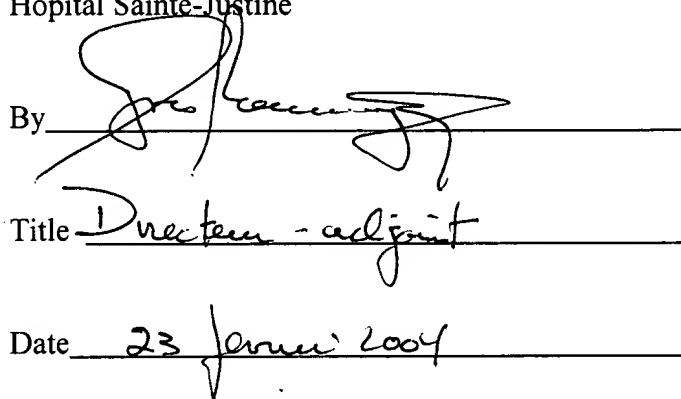 Hôpital Sainte-Justine
By
Title Directeur - adjoint
Date 23 février 2004